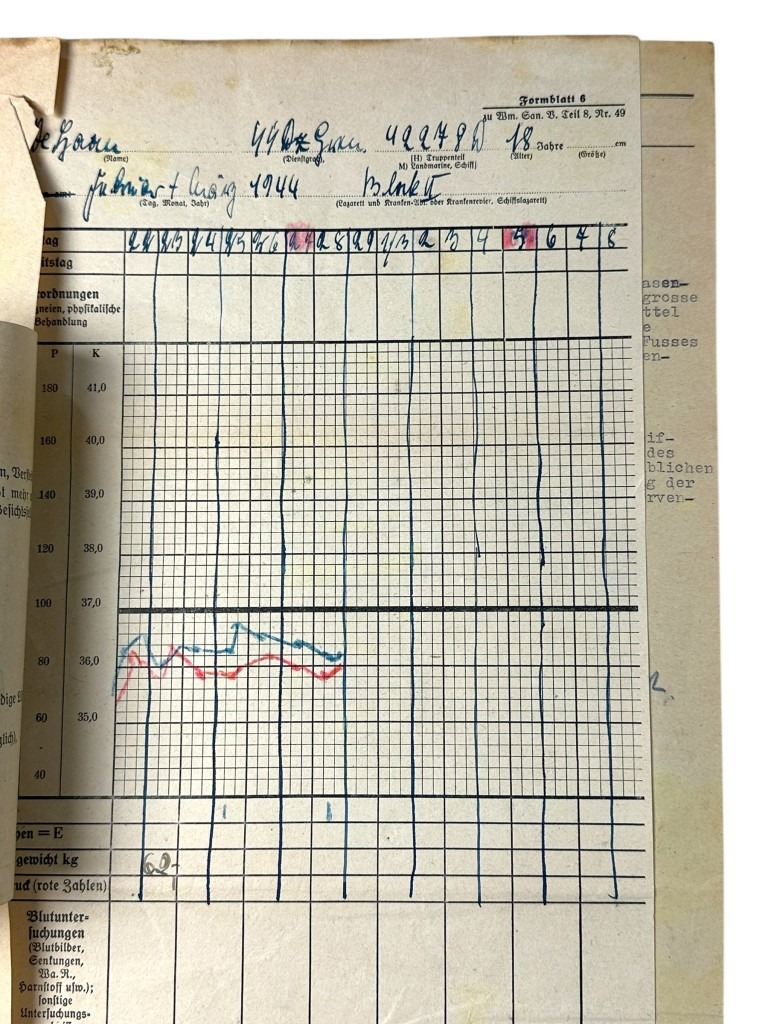 Formblatt 6
zu Wm. San. V. Teil 8, Nr. 49
de Haan 42278 D 18 Jahre cm
(Name) (Dienstgrad) (H) Truppenteil (Alter) (Größe)
M) Landmarine, Schiff)
Februar + März 1944 Block II
(Tag, Monat, Jahr) (Lazarett und Kranken-Abt. oder Krankenrevier, Schiffslazarett)
ag 22 23 24 25 26 27 28 29 1/3 2 3 4 5 6 7 8
itstag
ordnungen
zneien, physikalische
Behandlung
P K
180 41,0
160 40,0
140 39,0
120 38,0
100 37,0
80 36,0
60 35,0
40
en = E
gewicht kg 62,-
uck (rote Zahlen)
Blutunter-
suchungen
(Blutbilder,
Senkungen,
Wa. R.,
Harnstoff usw.);
sonstige
Untersuchungs-
asen-
grosse
ttel
e
Fusses
en-
if-
des
blichen
g der
rven-